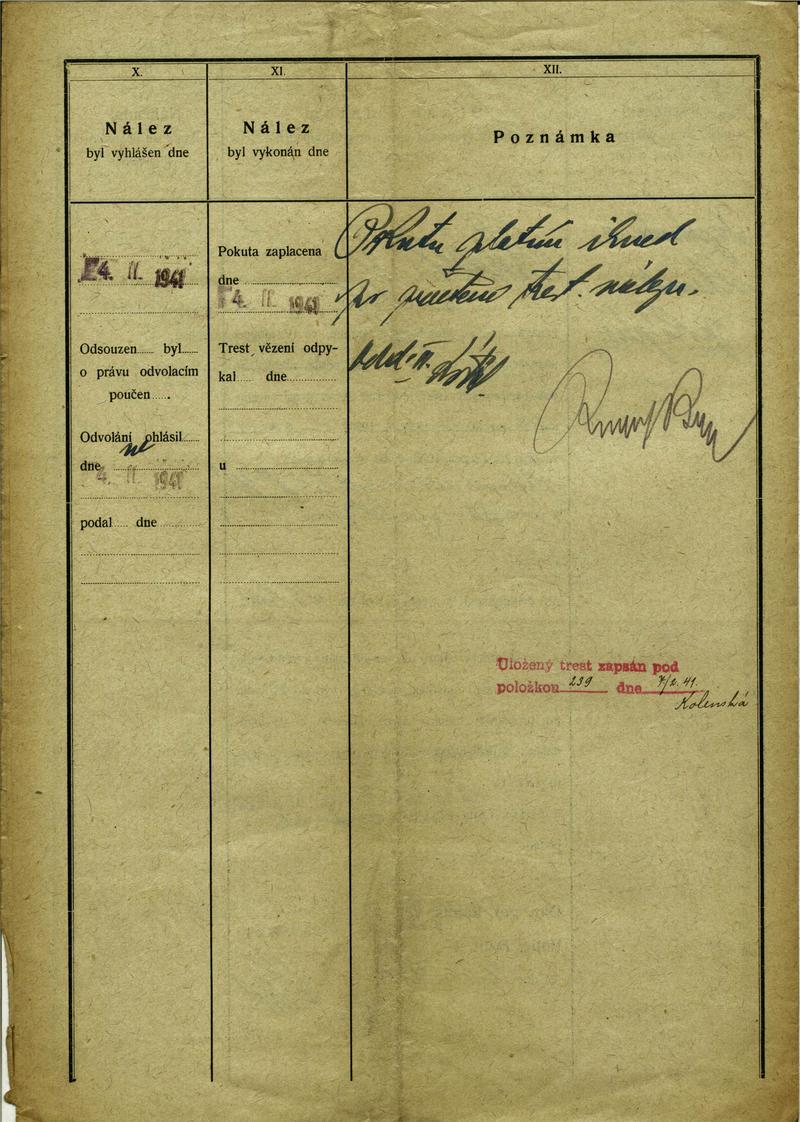 X.
Nález
byl vyhlášen dne
4. II. 1941
Odsouzen byl
o právu odvolacím
poučen .
Odvolání ohlásil
ne
dne
4. II. 1941
podal dne
XI.
Nález
byl vykonán dne
Pokuta zaplacena
dne
4. II. 1941
Trest vězení odpy-
kal dne
u
XII.
Poznámka
Pokutu platím ihned
po trest. nálezu.
Odd. II.
Uložený trest zapsán pod
položkou 239 dne 7/2. 41.
Kolenská